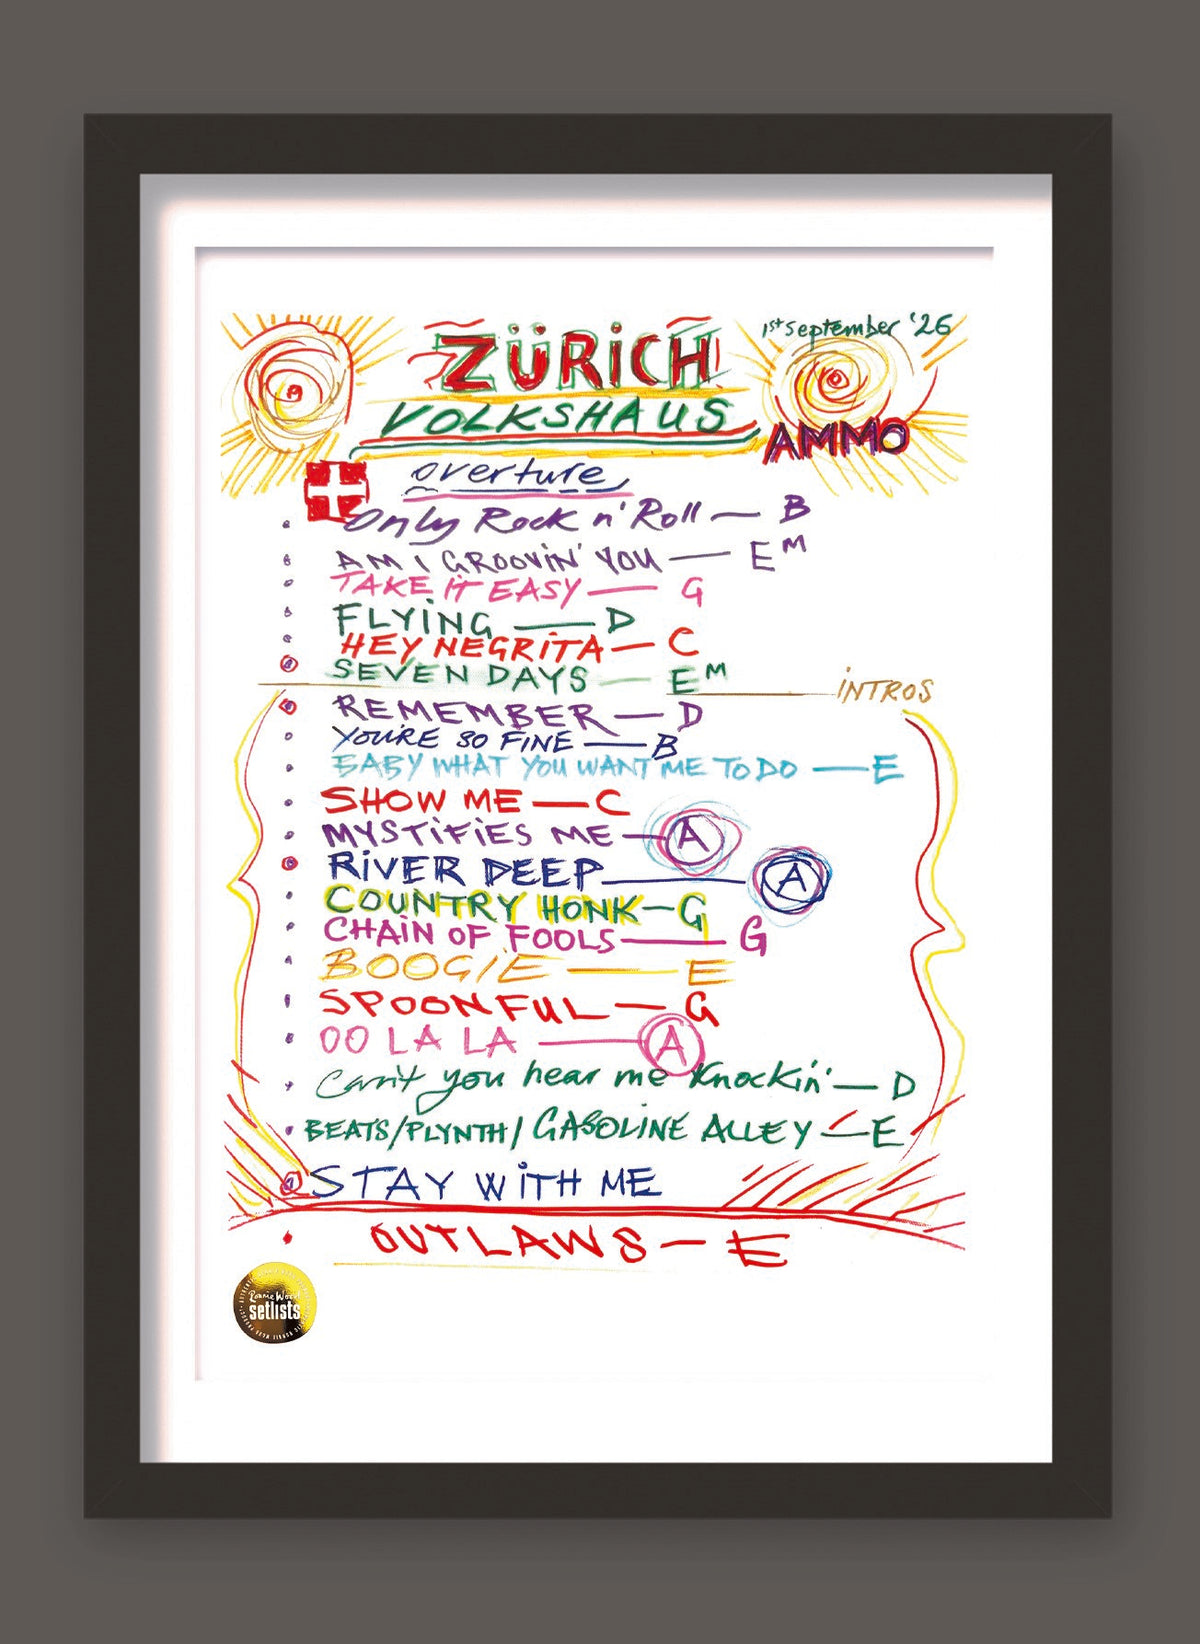 1st september '26
ZÜRICH
VOLKSHAUS
AMMO
overture
Only Rock n' Roll — B
AM I GROOVIN' YOU — EM
TAKE IT EASY — G
FLYING — D
HEY NEGRITA — C
SEVEN DAYS — EM
INTROS
REMEMBER — D
YOU'RE SO FINE — B
BABY WHAT YOU WANT ME TO DO — E
SHOW ME — C
MYSTIFIES ME — A
RIVER DEEP — A
COUNTRY HONK — G
CHAIN OF FOOLS — G
BOOGIE — E
SPOONFUL — G
OO LA LA — A
Can't you hear me Knockin' — D
BEATS/PLYNTH/GASOLINE ALLEY — E
STAY WITH ME
OUTLAWS — E
Ronnie Wood
setlists